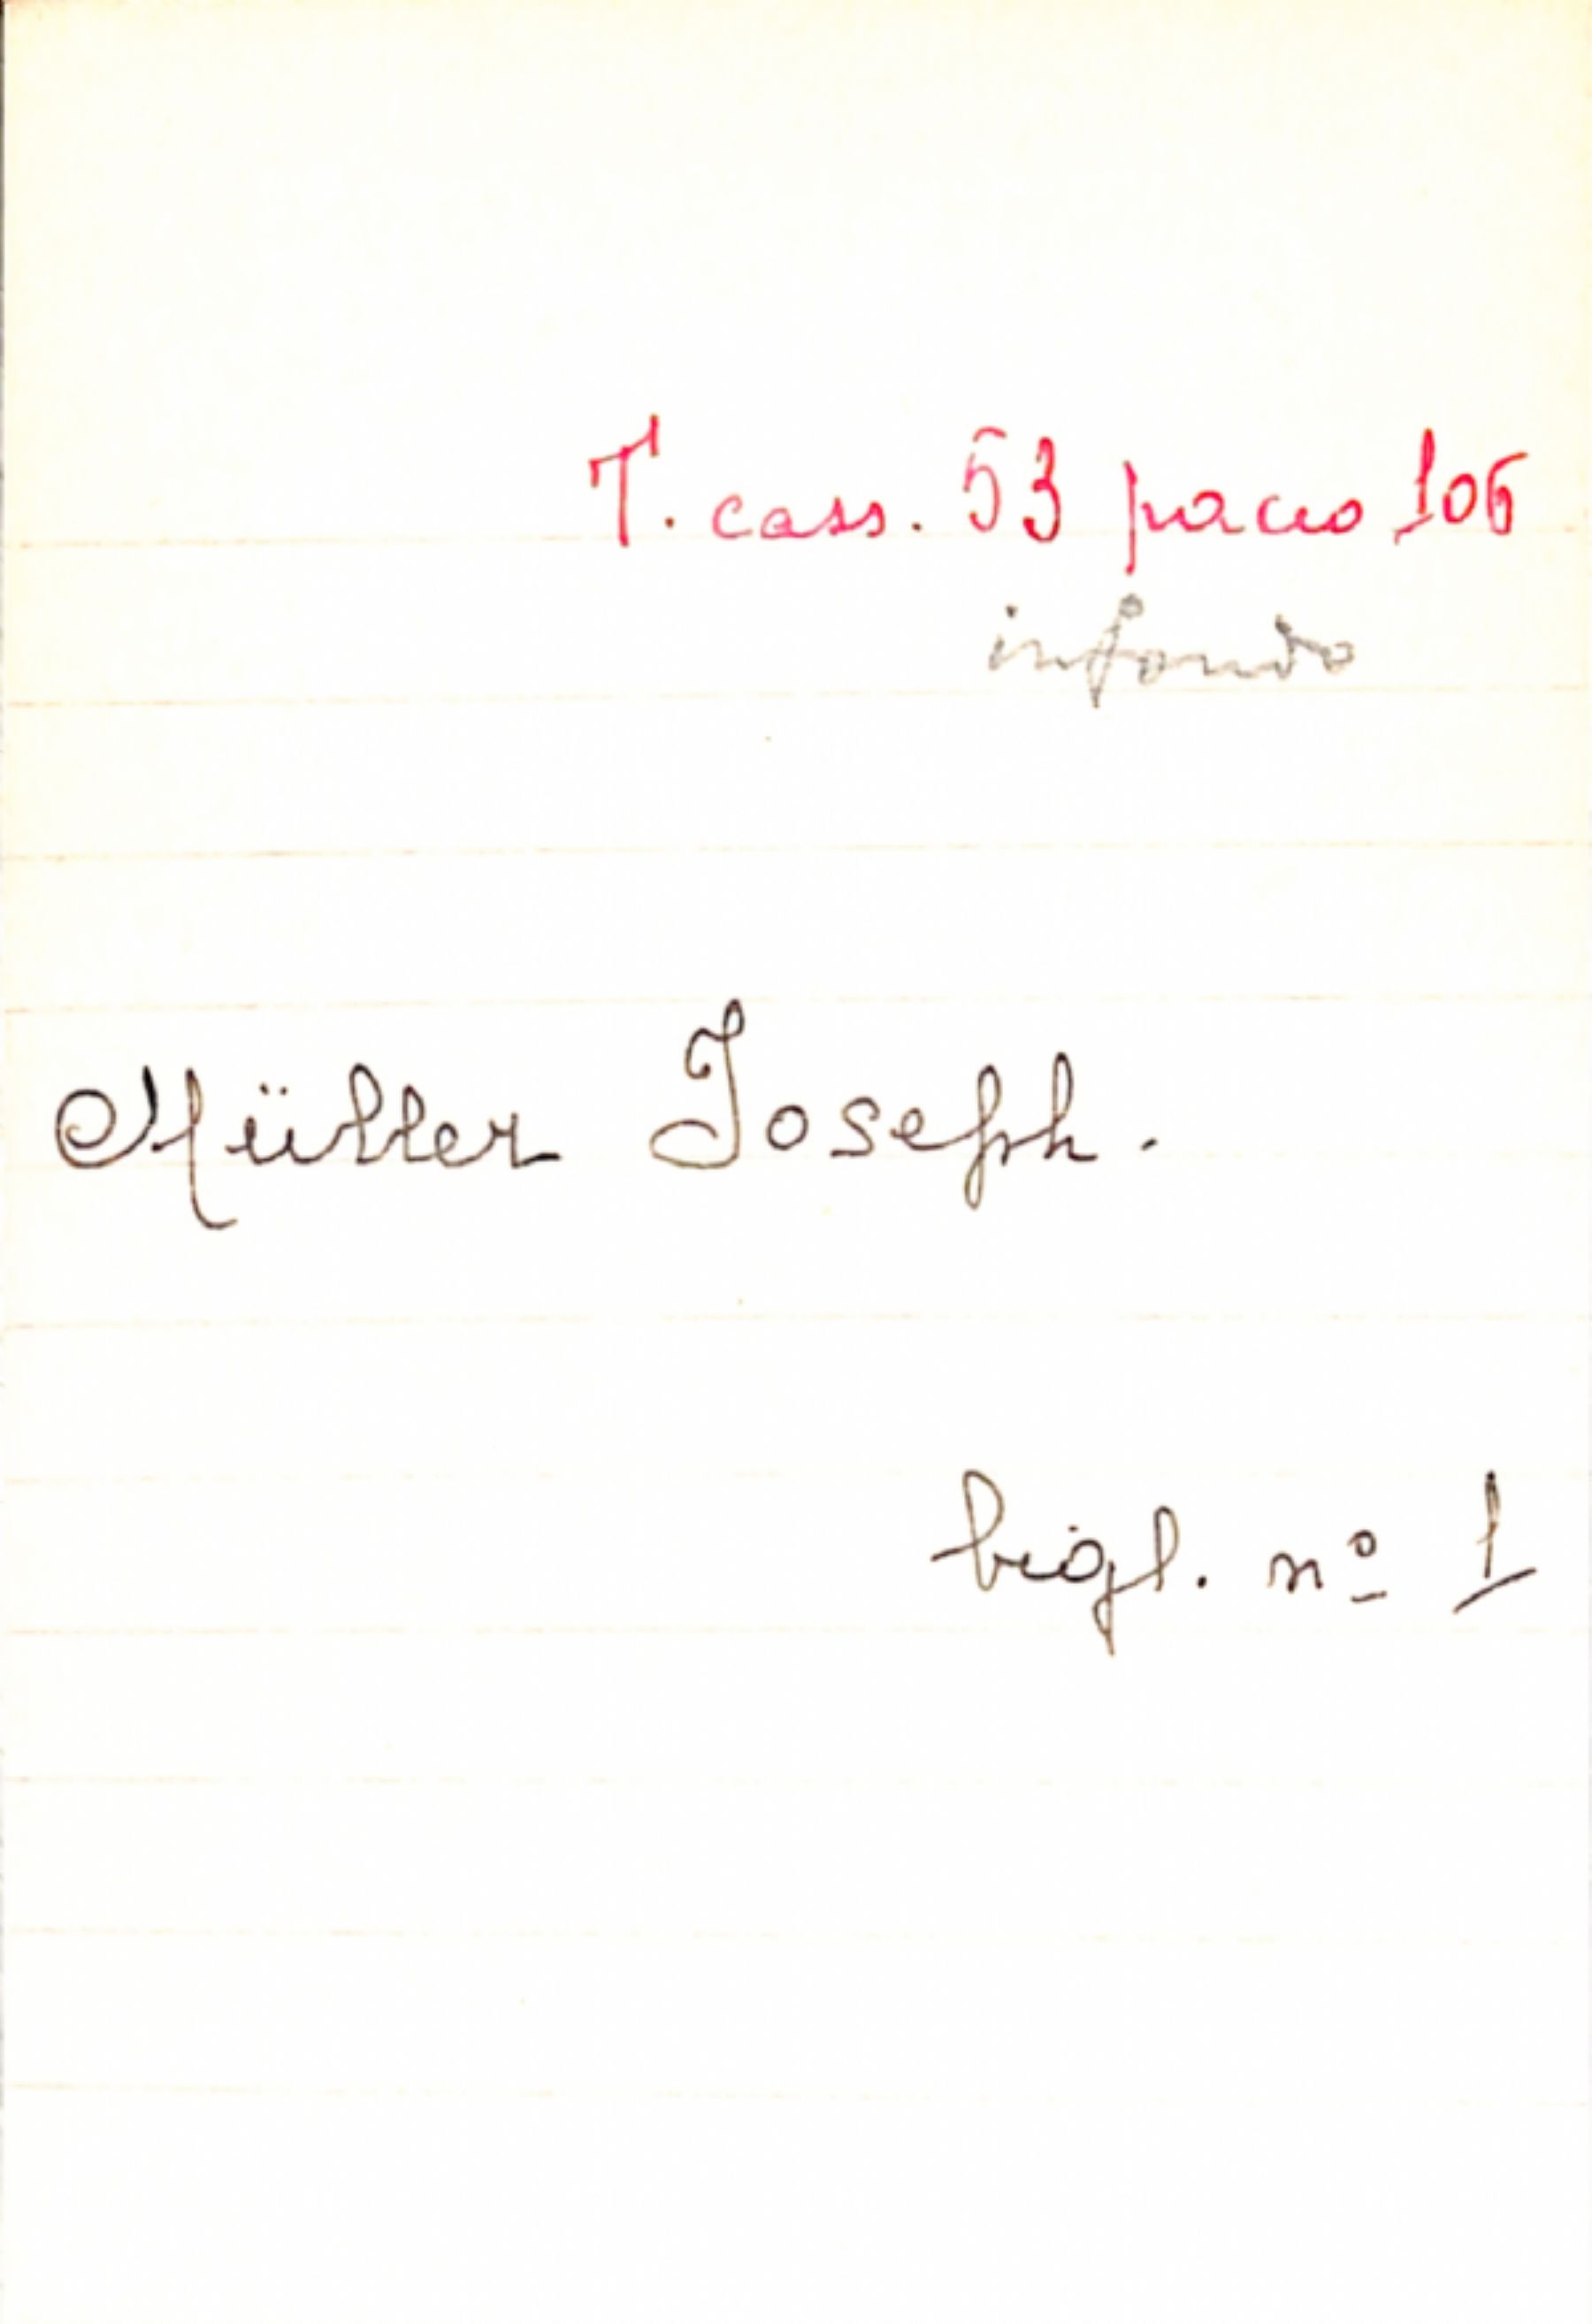 T. cass. 53 pacco 106
in fondo
Müller Joseph.
bigl. nº 1